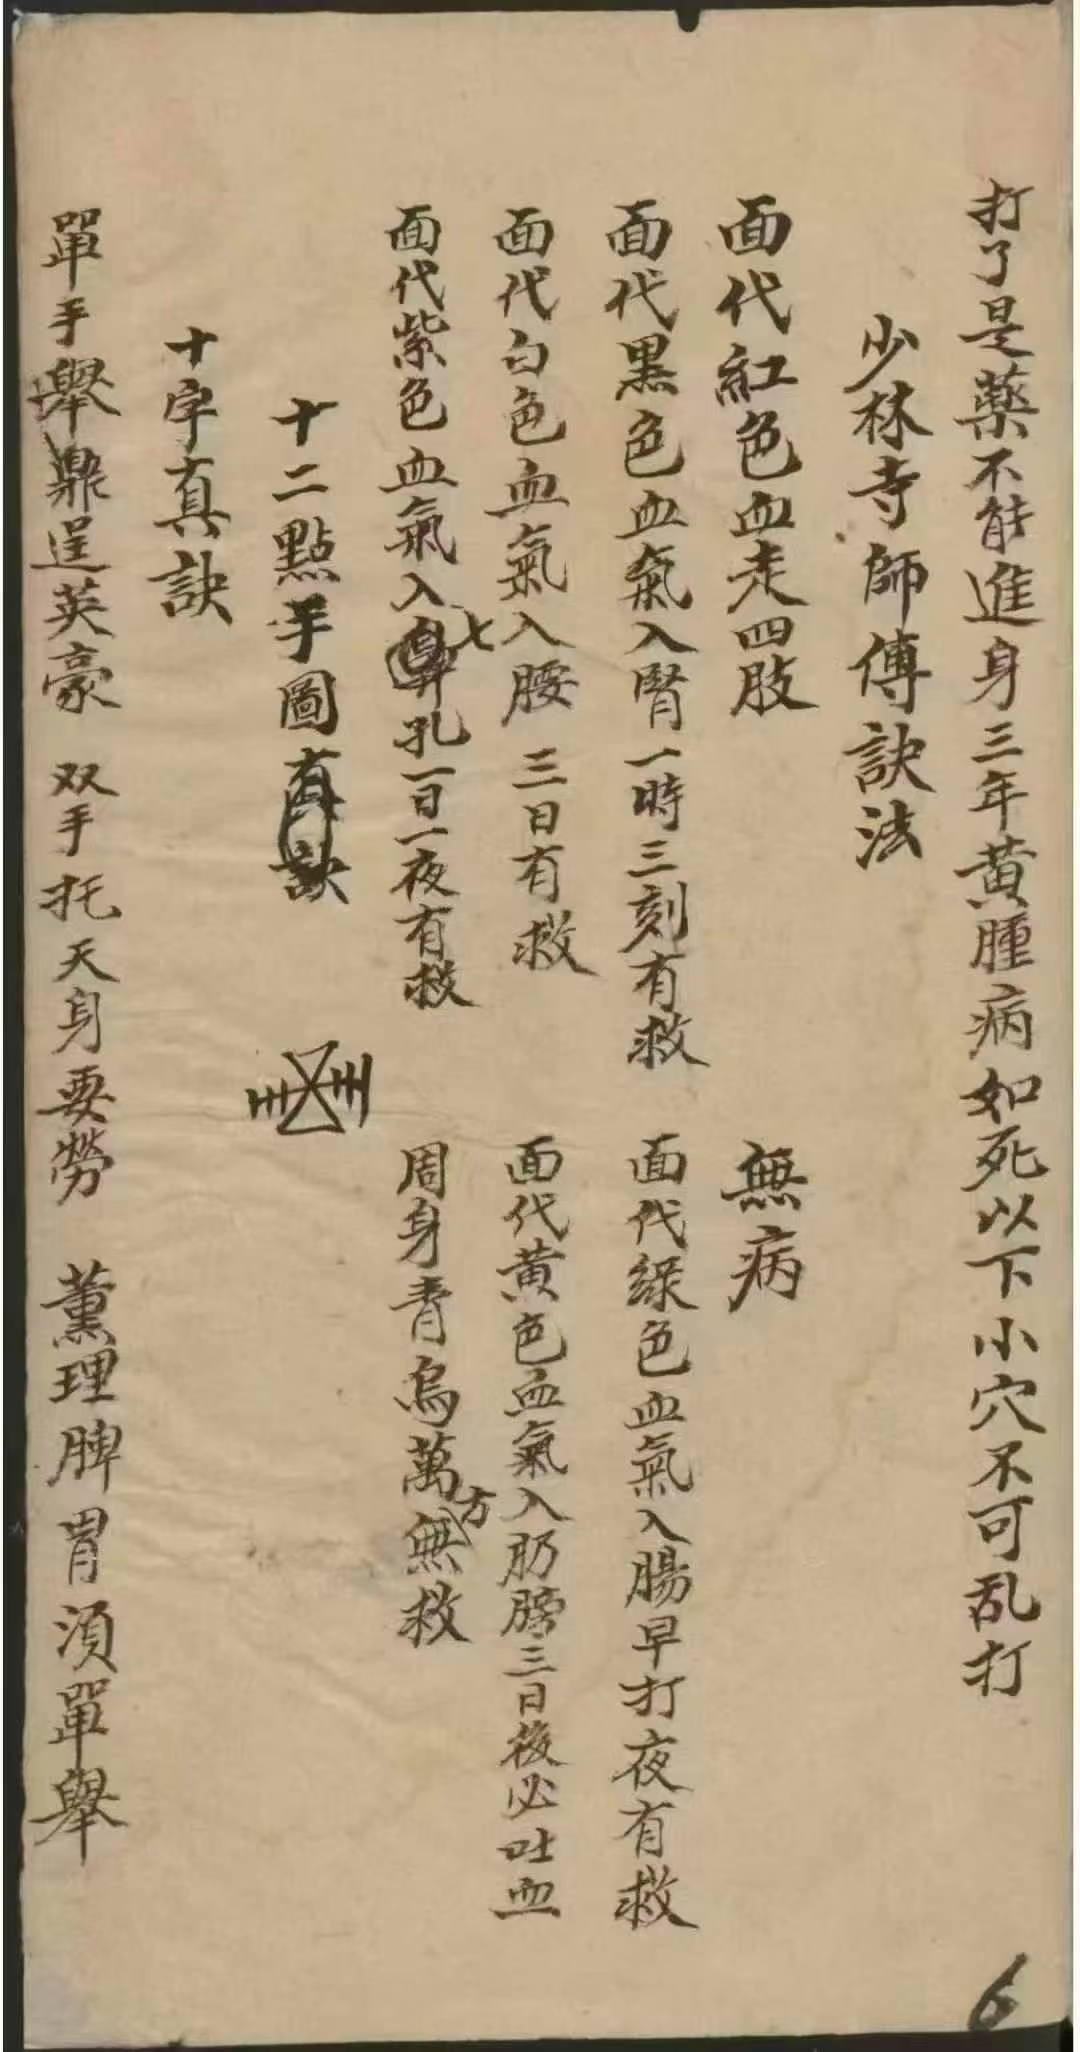 打了是藥不能進身三年黄腫病如死以下小穴不可乱打
少林寺師傅訣法
面代紅色血走四肢 無病
面代黑色血氣入腎一時三刻有救 面代綠色血氣入腸早打夜有救
面代白色血氣入腰三日有救 面代黄色血氣入肪膀三日後必吐血
面代紫色血氣入鼻孔一日一夜有救 周身青烏萬無方救
十二點手圖真訣
十字真訣
單手舉鼎逞英豪 双手托天身要勞 薰理脾胃須單舉
6